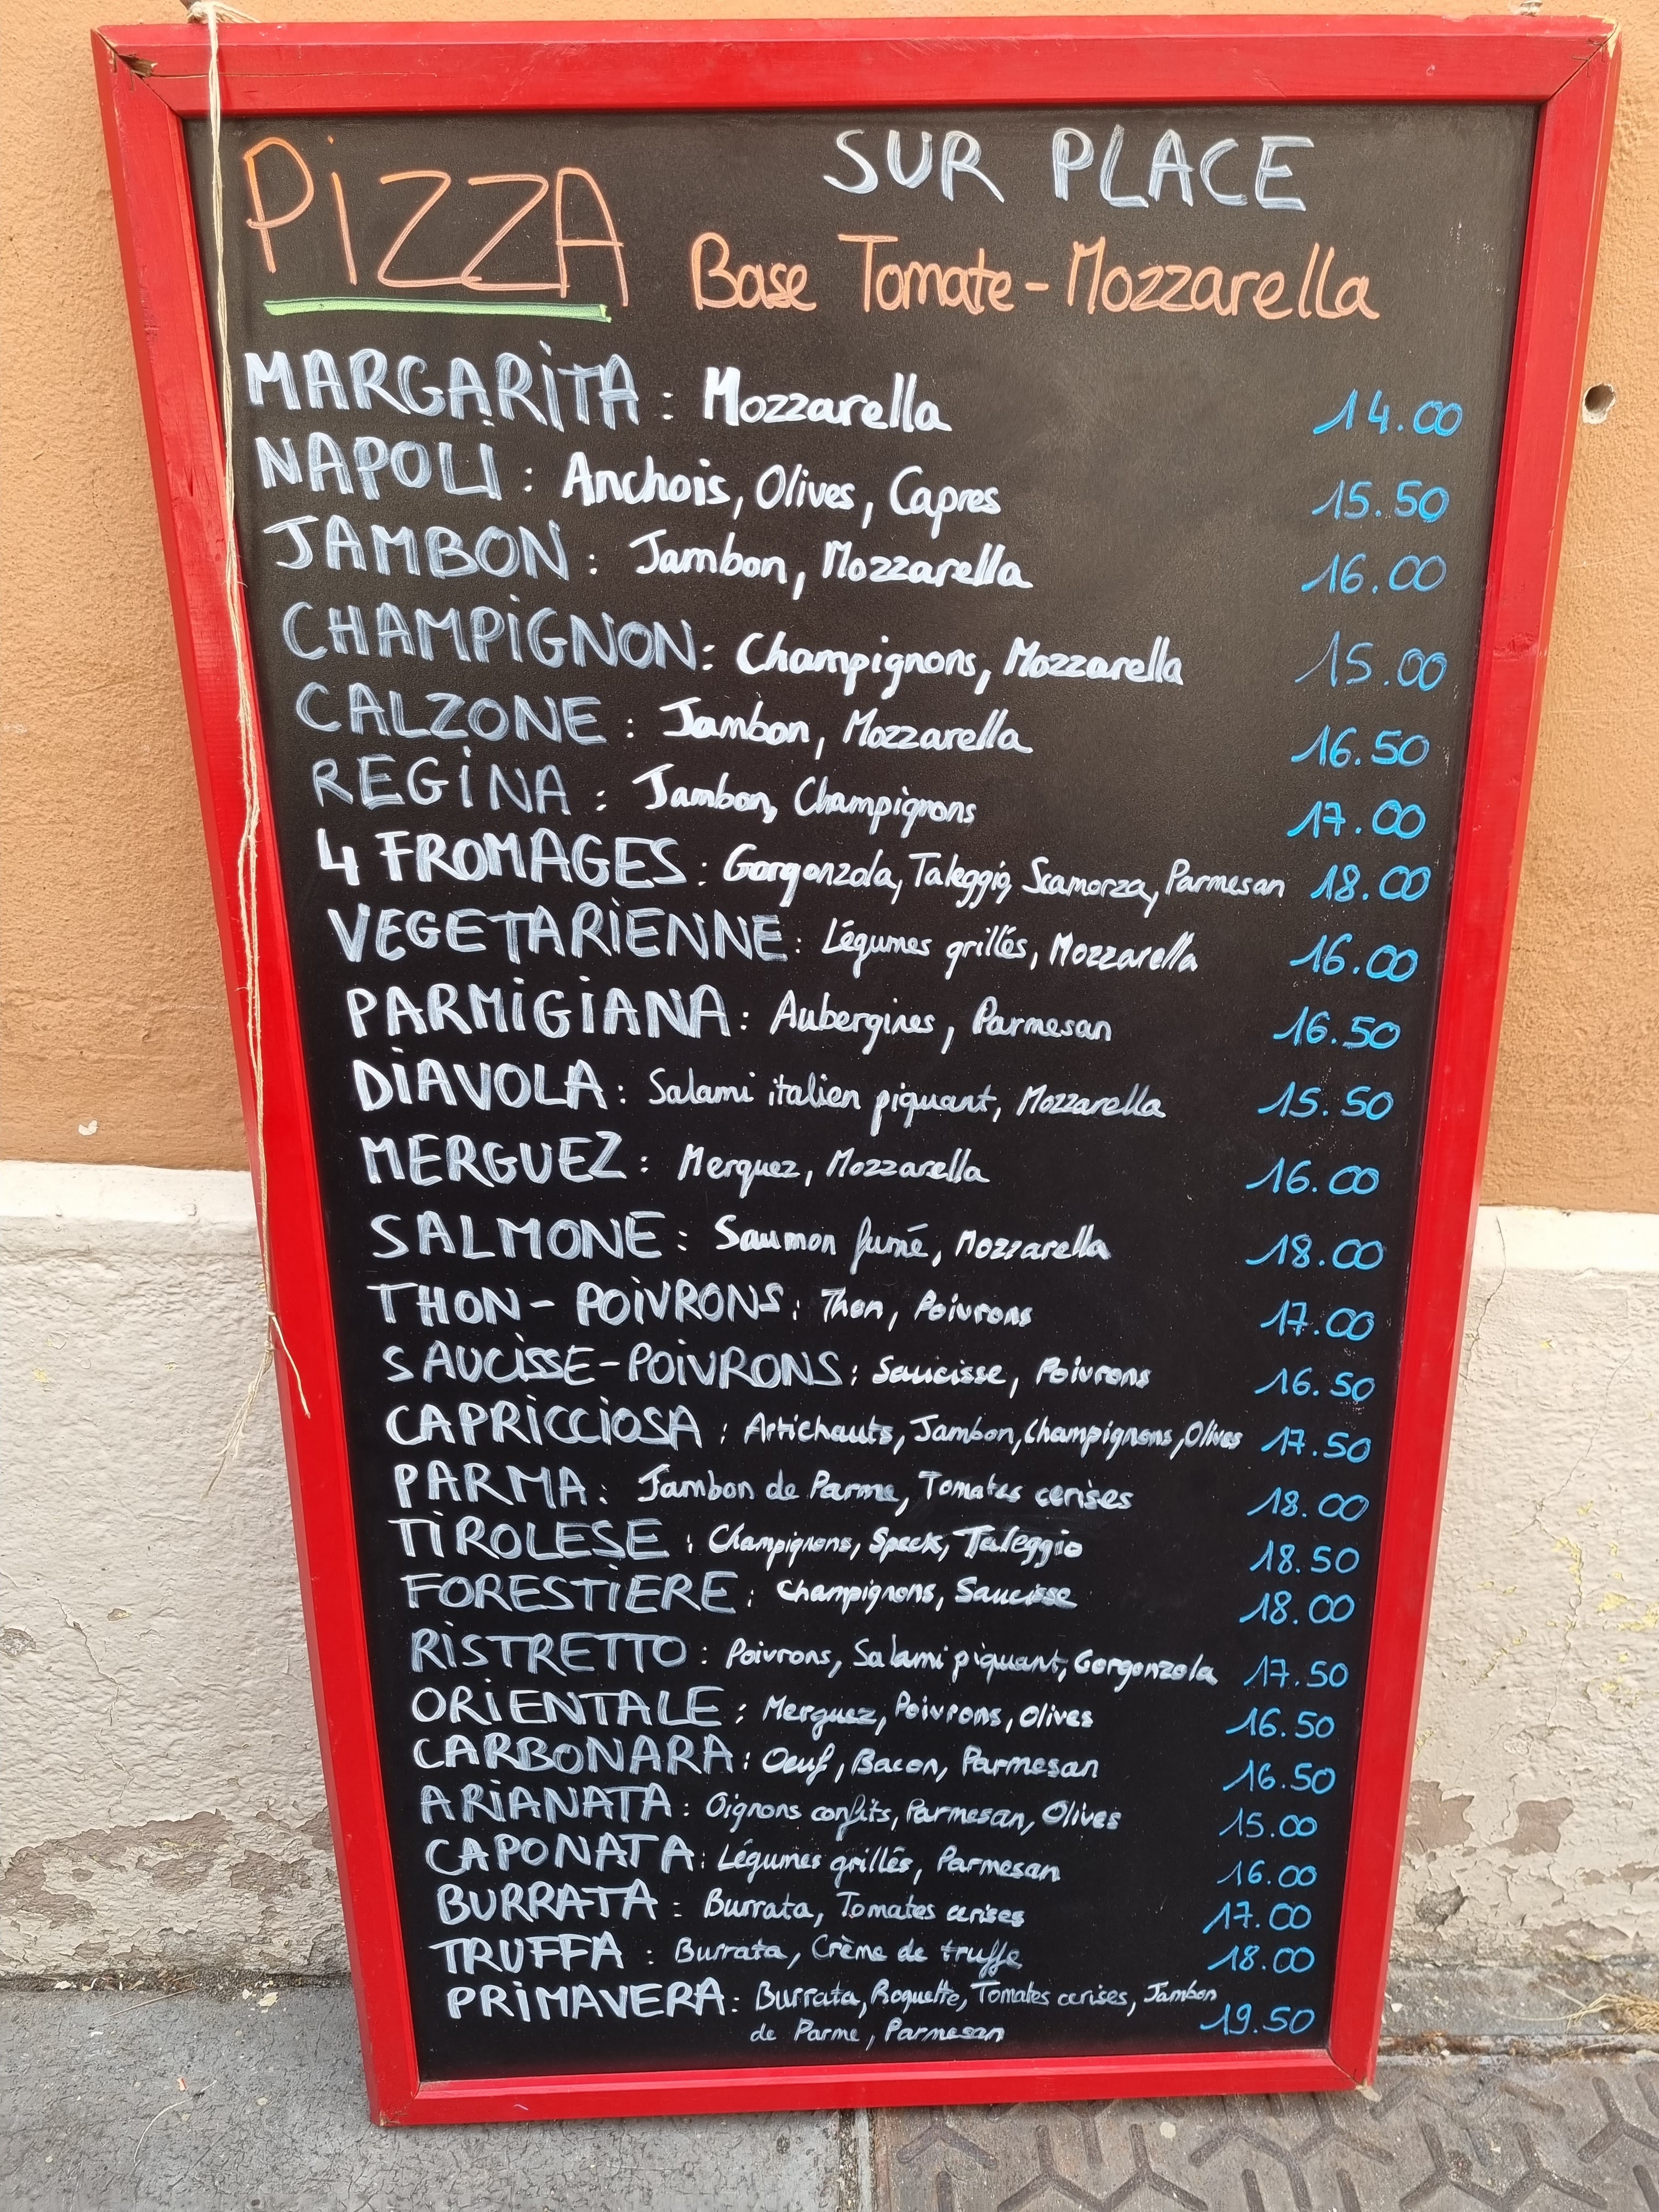 PiZZA SUR PLACE
Base Tomate-Mozzarella
MARGARiTA : Mozzarella 14.00
NAPOLi : Anchois, Olives, Capres 15.50
JAMBON : Jambon, Mozzarella 16.00
CHAMPiGNON : Champignons, Mozzarella 15.00
CALZONE : Jambon, Mozzarella 16.50
REGiNA : Jambon, Champignons 17.00
4 FROMAGES : Gorgonzola, Taleggio, Scamorza, Parmesan 18.00
VEGETARiENNE : Légumes grillés, Mozzarella 16.00
PARMiGiANA : Aubergines, Parmesan 16.50
DiAVOLA : Salami italien piquant, Mozzarella 15.50
MERGUEZ : Merguez, Mozzarella 16.00
SALMONE : Saumon fumé, Mozzarella 18.00
THON - POiVRONS : Thon, Poivrons 17.00
SAUCiSSE-POiVRONS : Saucisse, Poivrons 16.50
CAPRiCCiOSA : Artichauts, Jambon, Champignons, Olives 17.50
PARMA : Jambon de Parme, Tomates cerises 18.00
TiROLESE : Champignons, Speck, Taleggio 18.50
FORESTiERE : Champignons, Saucisse 18.00
RiSTRETTO : Poivrons, Salami piquant, Gorgonzola 17.50
ORiENTALE : Merguez, Poivrons, Olives 16.50
CARBONARA : Oeuf, Bacon, Parmesan 16.50
ARiANATA : Oignons confits, Parmesan, Olives 15.00
CAPONATA : Légumes grillés, Parmesan 16.00
BURRATA : Burrata, Tomates cerises 17.00
TRUFFA : Burrata, Crème de truffe 18.00
PRiMAVERA : Burrata, Roquette, Tomates cerises, Jambon
de Parme, Parmesan 19.50